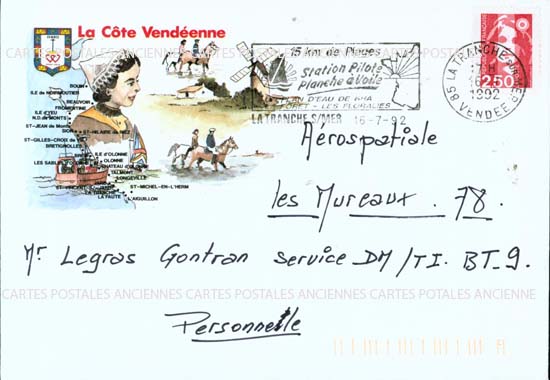 La Côte Vendéenne
VENDÉE
BOUIN
ILE de NOIRMOUTIER
BEAUVOIR
FROMENTINE
ILE d'YEU
N.D. de MONTS
ST-JEAN de Monts
SION
ST-HILAIRE de RIEZ
ST-GILLES-CROIX de VIE
BRETIGNOLLES
ILE D'OLONNE
OLONNE
LES SABLES
CHATEAU d'OLONNE
TALMONT
LONGEVILLE
ST-VINCENT
ST-MICHEL-EN-L'HERM
LA TRANCHE
LA FAUTE
L'AIGUILLON
15 km de Plages
Station Pilote
Planche à Voile
PLAN D'EAU DE 6HA
FORET - LES FLORALIES
LA TRANCHE S/MER 16-7-92
85 LA TRANCHE S/MER
16-7
1992
VENDEE
2,50
Aérospatiale
les Mureaux. 78.
Mr Legras Gontran Service DM/TI. BT_9.
CARTES POSTALES ANCIENNES CARTES POSTALES ANCIENNES CARTES POSTALES ANCIENNES
Personnelle